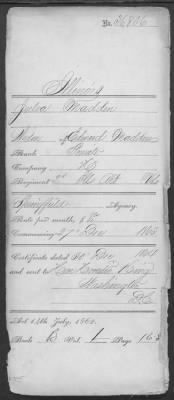 No. 36806
Illinois
Julia Madden
Widow of Edward Madden
Rank Private
Company
Regiment Ills Vols
Springfield Agency.
Rate per month, $8
Commencing 27 Dec 1863
Certificate dated Dec 1864
and sent to
Washington
D.C.
Act 14th July, 1862.
Book B Vol. 1 Page 163